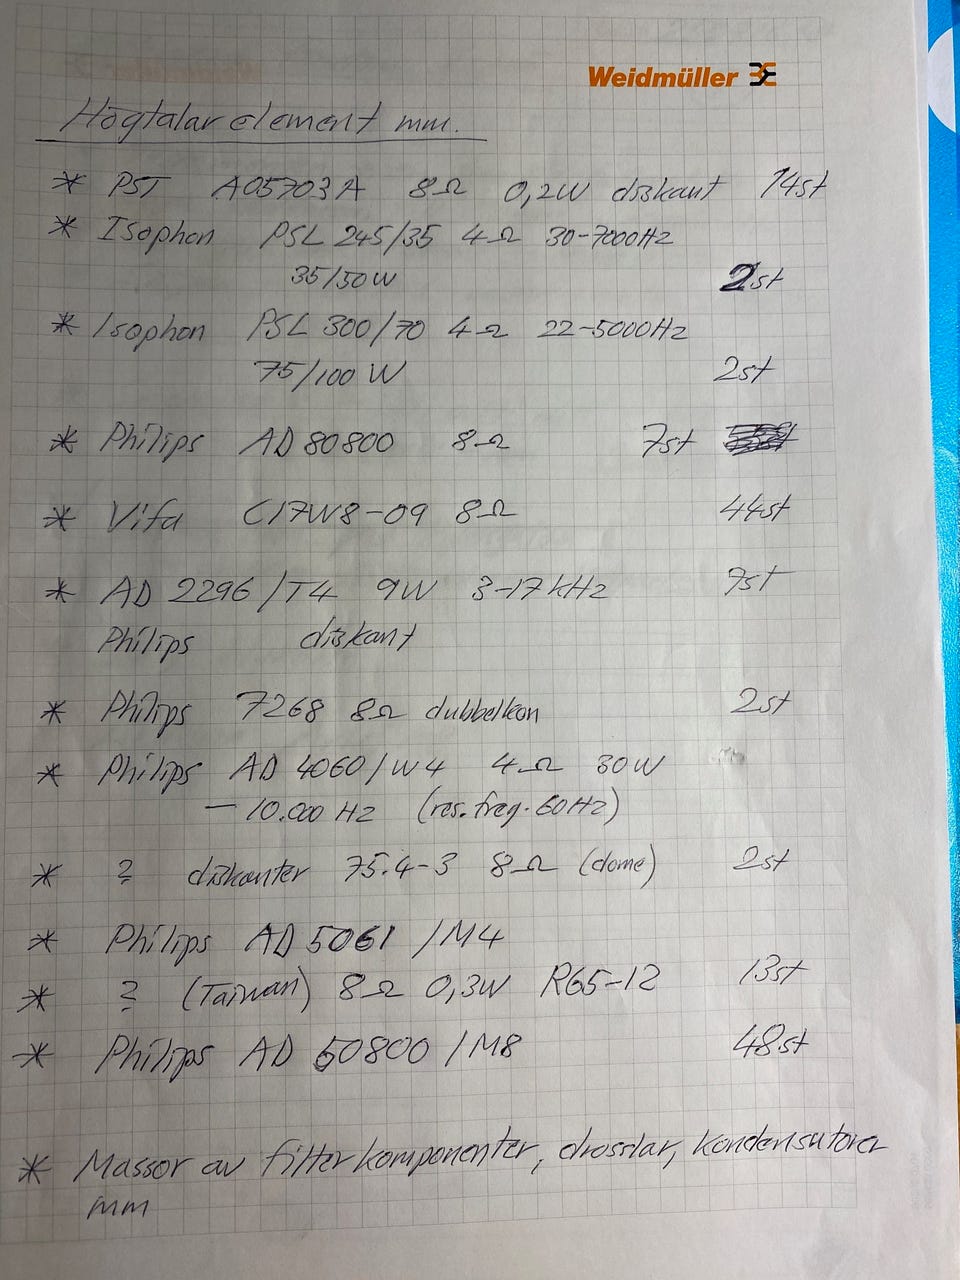 Weidmüller
Högtalarelement mm.
* PST A05703A 8Ω 0,2W diskant 14st
* Isophon PSL 245/35 4Ω 30-7000Hz
35/50W 2st
* Isophon PSL 300/70 4Ω 22-5000Hz
75/100 W 2st
* Philips AD 80800 8Ω 7st
* Vifa C17W8-09 8Ω 44st
* AD 2296/T4 9W 3-17kHz 7st
Philips diskant
* Philips 7268 8Ω dubbelkon 2st
* Philips AD 4060/W4 4Ω 30W
- 10.000 Hz (res.freq. 60Hz)
* ? diskanter 75.4-3 8Ω (dome) 2st
* Philips AD 5061 /M4
* ? (Taiwan) 8Ω 0,3W R65-12 13st
* Philips AD 50800 /M8 48st
* Massor av filterkomponenter, drosslar, kondensatorer
mm